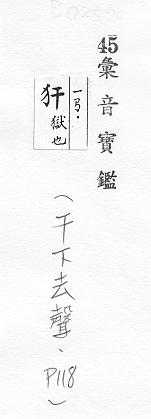 45彙音寶鑑
一号·
犴獄也
(干下去聲、P118)